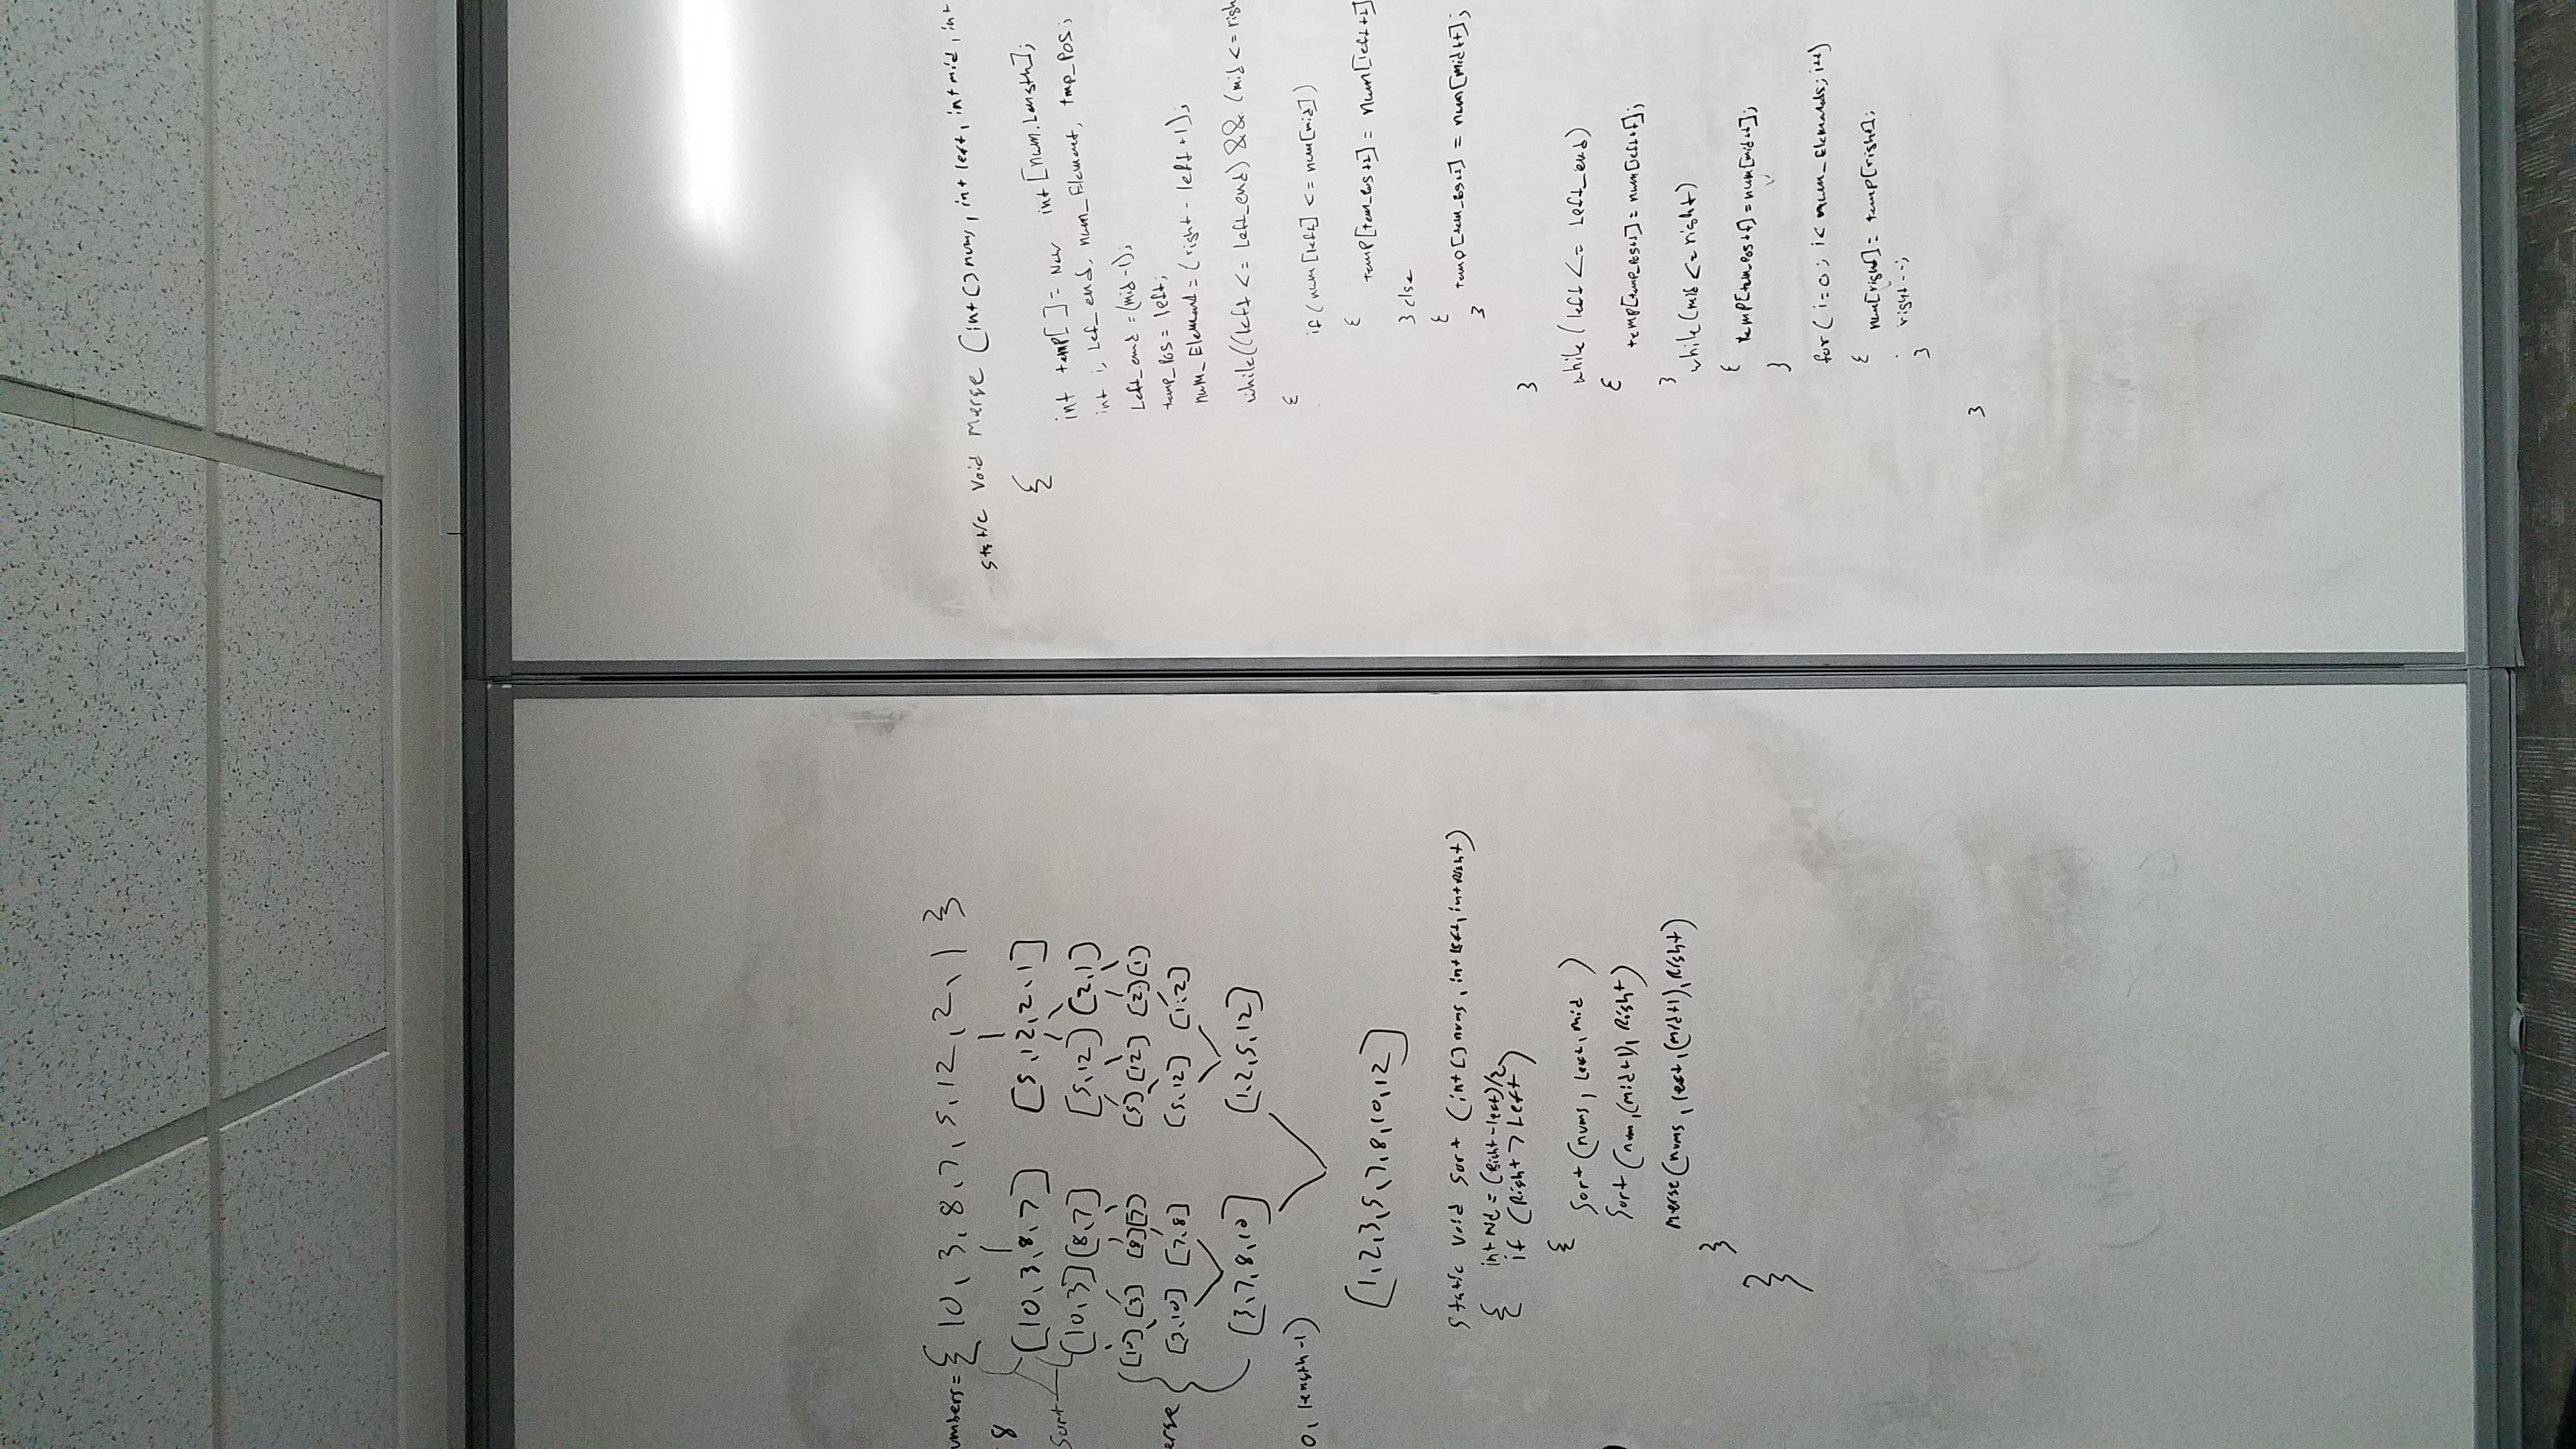 umbers = { 10, 3, 8, 7, 5, 12, 2, 1 }
8
[10, 3, 8, 7] [5, 12, 2, 1]
Sort
[10, 3] [8, 7] [5, 12] [2, 1]
[10] [3] [8] [7] [5] [12] [2] [1]
erge
[3, 10] [7, 8] [5, 12] [1, 2]
[3, 7, 8, 10] [1, 2, 5, 12]
0, length-1)
[1, 2, 3, 5, 7, 8, 10, 12]
Static void Sort (int [] nums, int left, int Right)
{ int Mid = (Right - left)/2
if (Right > Left)
{
Sort (nums, left, mid )
Sort (num, (mid+1), Right)
Merge (nums, left, (mid+1), Right)
}
}
Static Void Merge (int [] nums, int left, int mid, int
{
int temp[ ] = New int [num.Length];
int i, Lef_end, num_Element, tmp_Pos;
Left_end = (mid -1);
temp_Pos = left;
num_Element = (right - left +1);
while((left <= Left_end) && (mid <= righ
{
if (num [left] <= num[mid])
{
temp[tem_Pos++] = num[left++]
} else
{
temp[tem_Pos++] = num[mid++];
}
}
while (left <= Left_end)
{
temp[temp_Pos++] = num[left++];
}
while (mid <= right)
{
temp[tem_Pos++] = num[mid++];
}
for ( i=0; i< num_Elements; i++)
{
num[right] = temp[right];
right--;
}
}